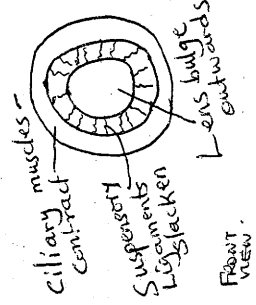 Ciliary muscles -
contract
Suspensory
Ligaments
slacken
Lens bulge
outwards
FRONT
VIEW.